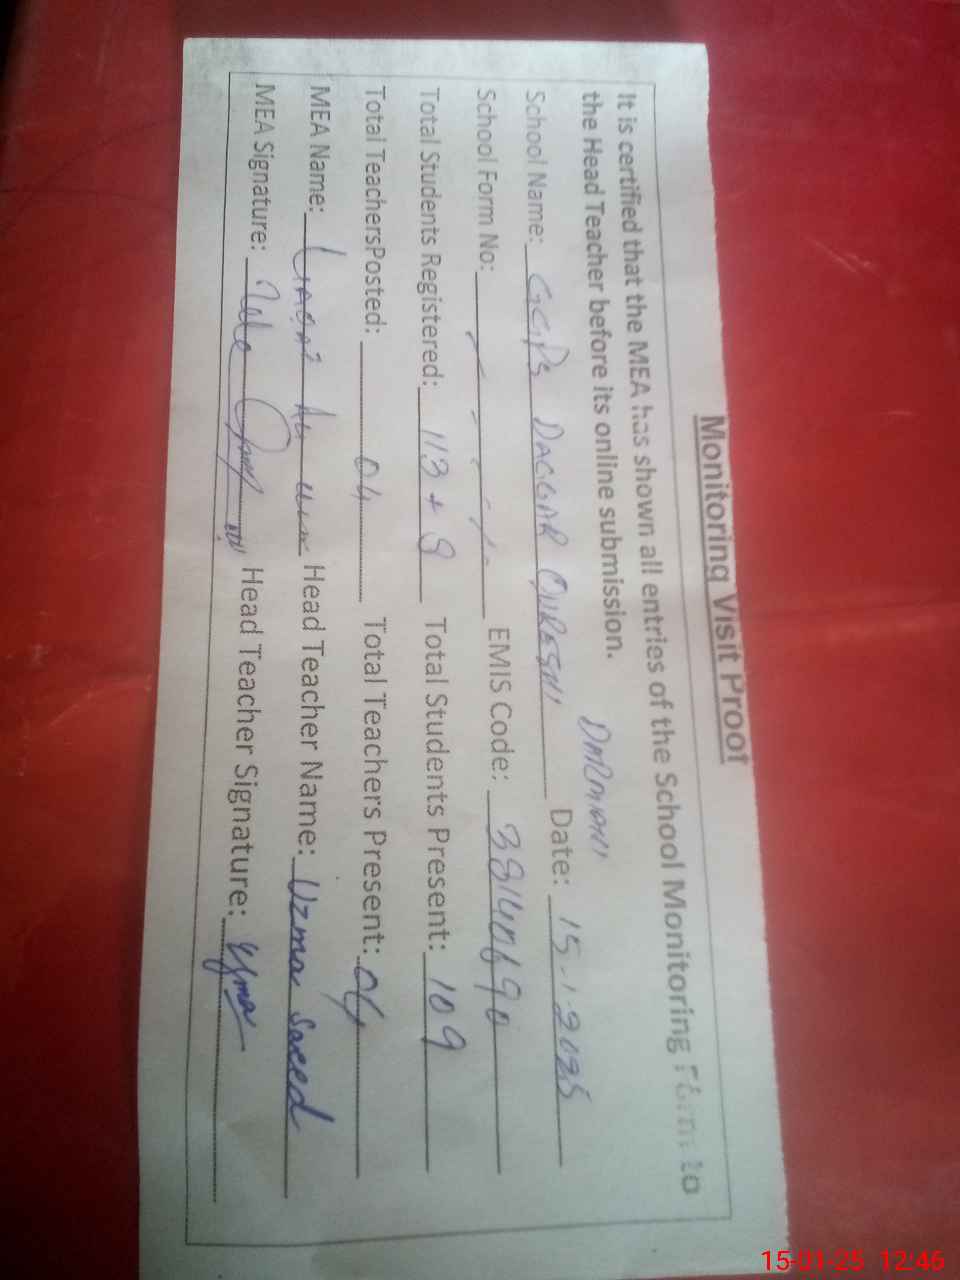 Monitoring Visit Proof
It is certified that the MEA has shown all entries of the School Monitoring Form to
the Head Teacher before its online submission.
School Name: GGPS DAGGAR QURESHI Date: 15-1-2025
School Form No: EMIS Code:
Total Students Registered: 113 + 9 Total Students Present: 109
Total TeachersPosted: 04 Total Teachers Present: 04
MEA Name: LIAQAT ALI Head Teacher Name: Uzma Saeed
MEA Signature: Head Teacher Signature: Uzma
15-01-25 12:46